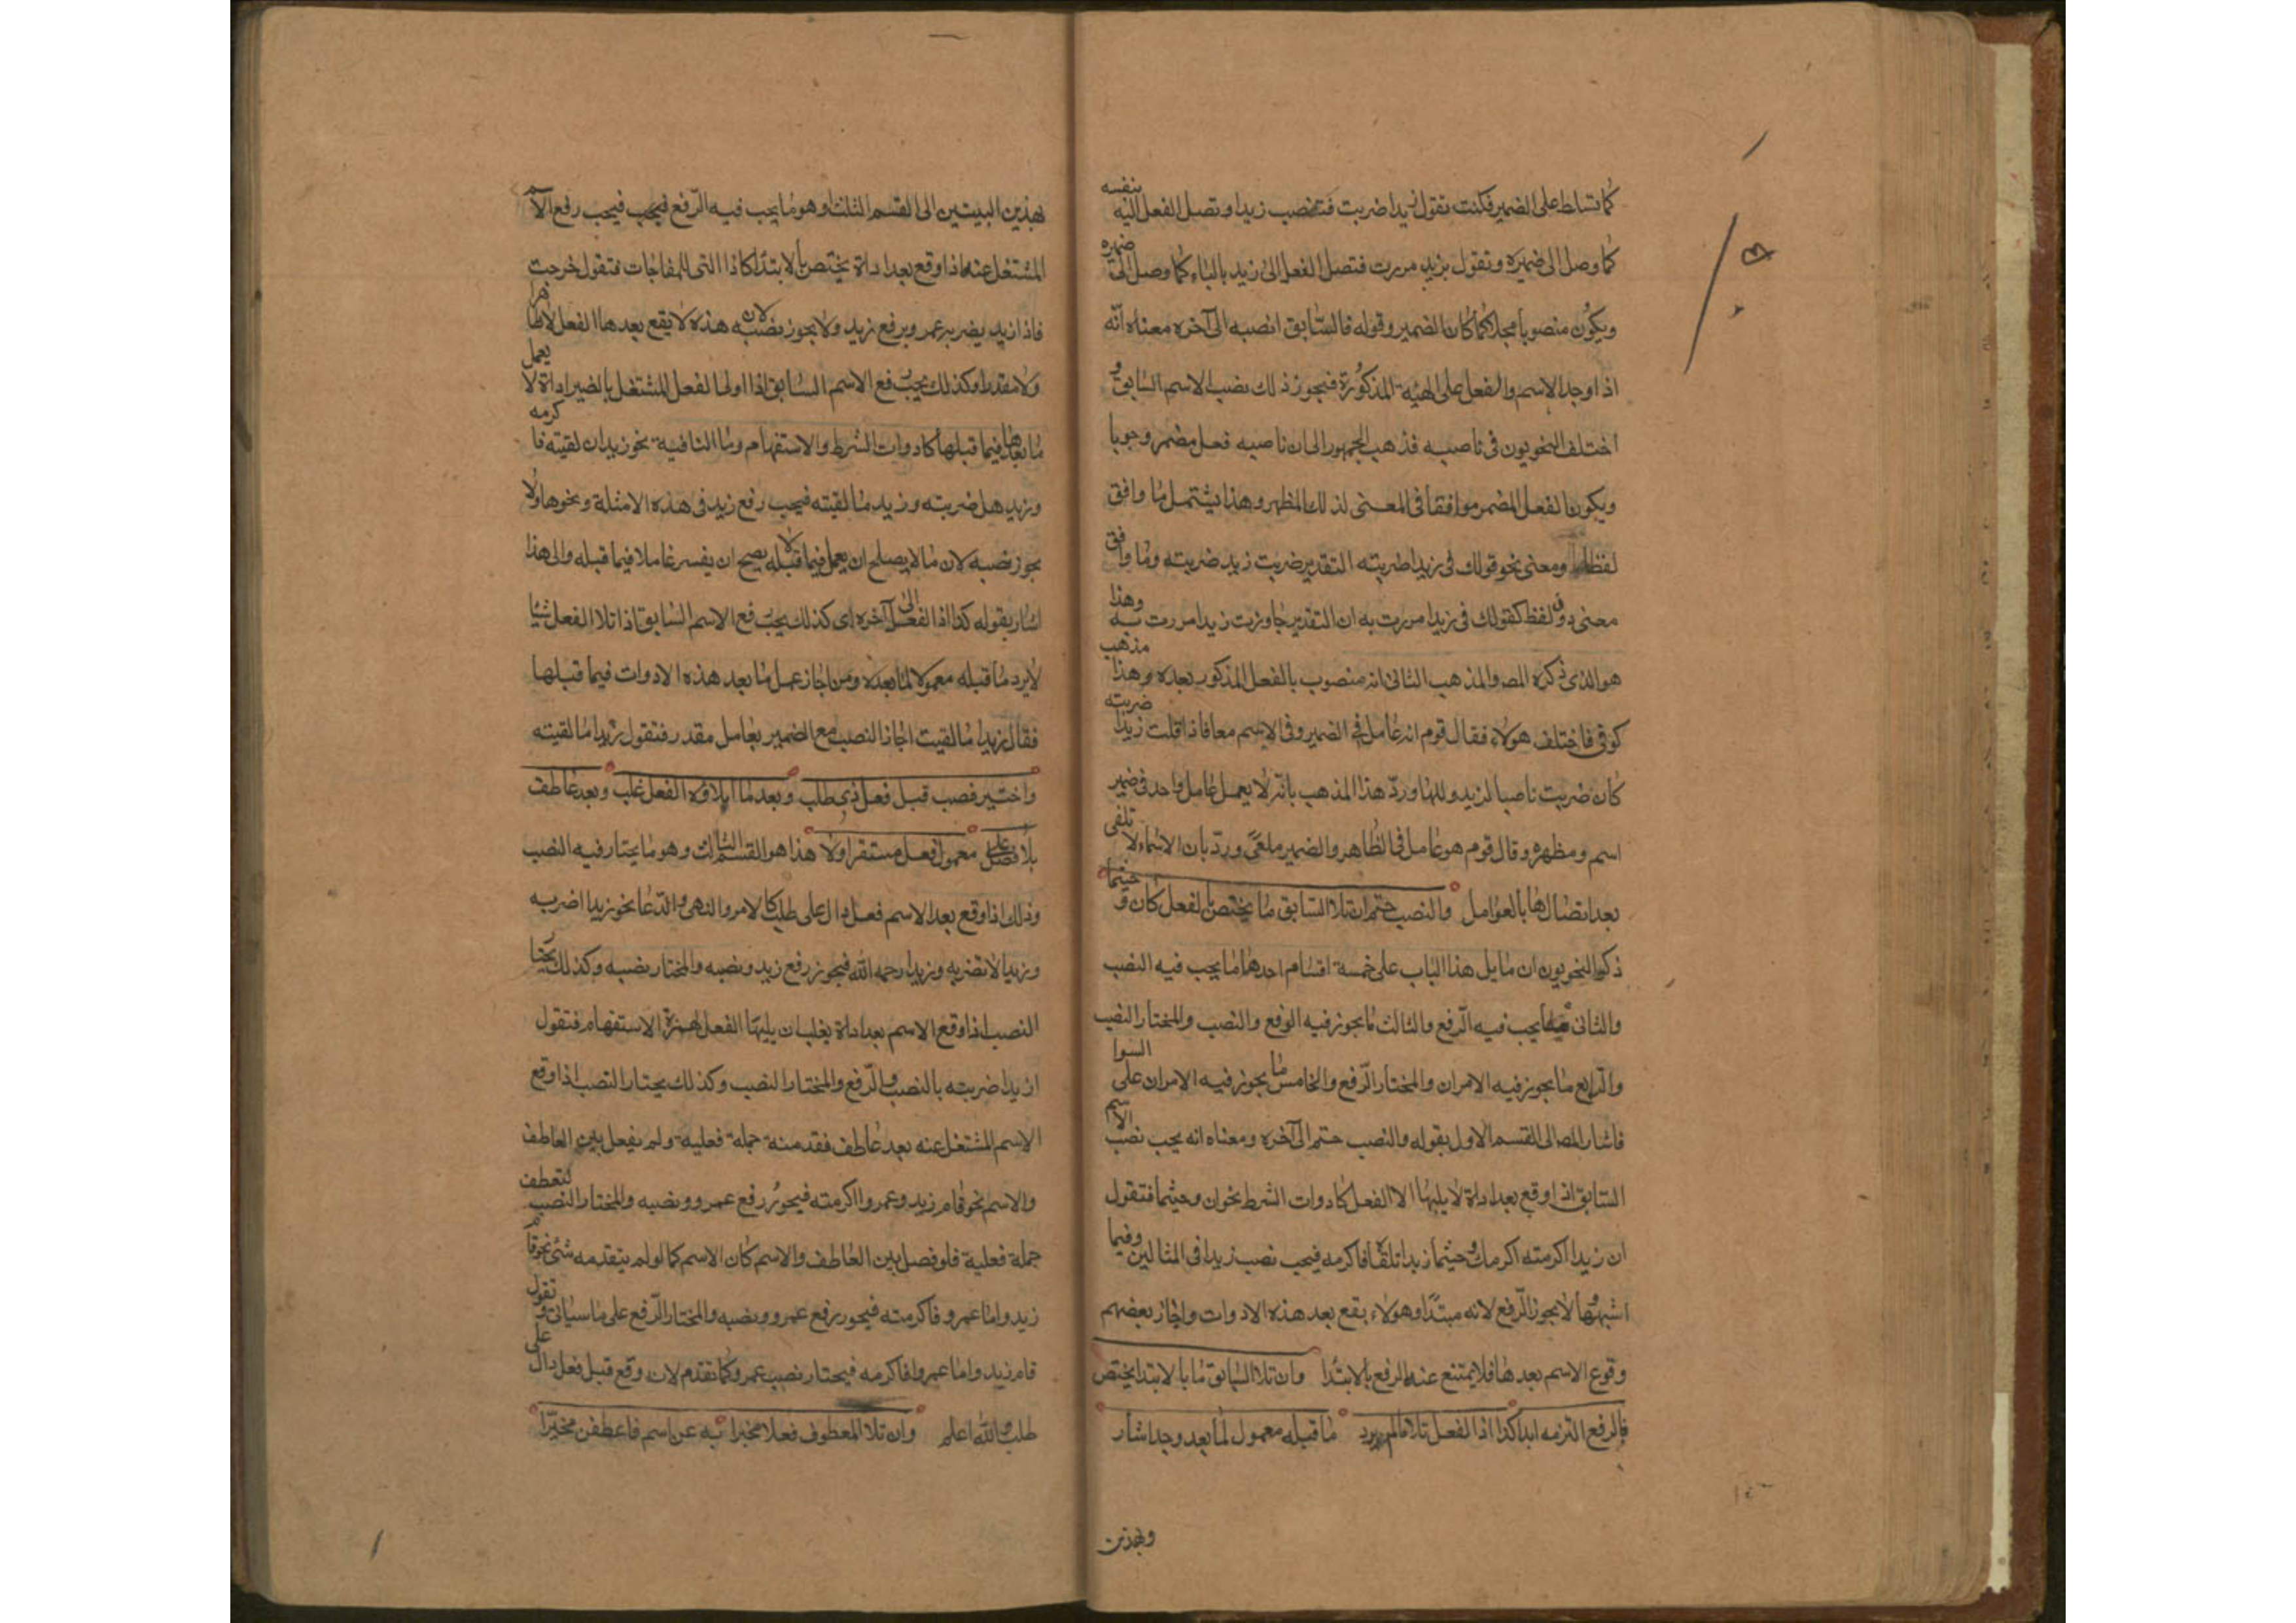 كما تسلط على الضمير فكنت تقول زيدا ضربت فتنصب زيدا وتصل الفعل اليه بنفسه
كما وصل الى ضميره وتقول بزيد مررت فتصل الفعل الى زيد بالباء كما وصل الى ضميره
ويكون منصوبا محلا كما كان الضمير وقوله فالسابق انصبه الى آخره معناه انه
اذا وجد الاسم والفعل على الهيئة المذكورة فيجوز ذلك نصب الاسم السابق و
اختلف النحويون فى ناصبه فذهب الجمهور الى ان ناصبه فعل مضمر وجوبا
ويكون الفعل المضمر موافقا فى المعنى لذلك المظهر وهذا يشتمل ما وافق
لفظا ومعنى نحو قولك فى زيدا ضربته التقدير ضربت زيد ضربته وما وافق
معنى دون لفظ كقولك فى زيدا مررت به ان التقدير جاوزت زيدا مررت به وهذا
هو الذى ذكره المصـ والمذهب الثانى انه منصوب بالفعل المذكور بعده وهذا مذهب
كوفى فاختلف هولاء فقال قوم انه عامل فى الضمير وفى الاسم معا فاذا قلت زيدا ضربته
كان ضربت ناصبا لزيد وللها وردّ هذا المذهب بانه لا يعمل عامل واحد فى ضمير
اسم ومظهره وقال قوم هو عامل فى الظاهر والضمير ملغى وردّ بان الاسماء لا تلغى
بعد اتصالها بالعوامل والنصب حتم ان تلا السابق ما يختص بالفعل كان و حيثما
ذكر النحويون ان مايل هذا الباب على خمسة اقسام احدها ما يجب فيه النصب
والثانى ما يجب فيه الرفع والثالث ما يجوز فيه الرفع والنصب والمختار النصب
والرابع ما يجوز فيه الامران والمختار الرفع والخامس ما يجوز فيه الامران على السوا
فاشار المصـ الى القسم الاول بقوله والنصب حتم الى آخره ومعناه انه يجب نصب الاسم
السابق اذا وقع بعد اداة لا يليها الا الفعل كادوات الشرط نحو ان وحيثما فتقول
ان زيدا اكرمته اكرمك وحيثما زيدا تلقه فاكرمه فيجب نصب زيدا فى المثالين وفيما
اشبهها لا يجوز الرفع لانه مبتدا وهولاء يقع بعد هذه الادوات واجاز بعضهم
وقوع الاسم بعدها فلا يمتنع عنده الرفع بالابتدا وان تلا السابق ما بالابتدا يختص
فالرفع التزمه ابدا كذا اذا الفعل تلا ما لم يرد ما قبله معمول لما بعد وجد اشار
وبهذين
بهذين البيتين الى القسم الثلث وهو ما يجب فيه الرفع فيجب رفع الاسم
المشتغل عنه اذا وقع بعد اداة يختص بالابتدا كاذا التى للمفاجات فتقول خرجت
فاذا زيد يضربه عمرو برفع زيد ولا يجوز نصبه لان هذه لا يقع بعدها الفعل لا ظاهرا
ولا مقدرا وكذلك يجب رفع الاسم السابق اذا اولى الفعل المشتغل بالضمير اداة لا يعمل
ما بعدها فيما قبلها كادوات الشرط والاستفهام وما النافية نحو زيد ان لقيته فاكرمه
وزيد هل ضربته وزيد ما لقيته فيجب رفع زيد فى هذه الامثلة ونحوها ولا
يجوز نصبه لان ما لا يصلح ان يعمل فيما قبله لا يصح ان يفسر عاملا فيما قبله والى هذا
اشار بقوله كذا اذا الفعل الى آخره اى كذلك يجب رفع الاسم السابق اذا تلا الفعل شيئا
لا يرد ما قبله معمولا لما بعده ومن اجاز عمل ما بعد هذه الادوات فيما قبلها
فقال زيدا ما لقيت اجاز النصب مع الضمير بعامل مقدر فتقول زيدا ما لقيته
واختير نصب قبل فعل ذى طلب وبعد ما ايلاؤه الفعل غلب وبعد عاطف
بلا فصل على معمول فعل مستقر اولا هذا هو القسم الثالث وهو ما يختار فيه النصب
وذلك اذا وقع بعد الاسم فعل دال على طلب كالامر والنهى والدعا نحو زيدا اضربه
وزيدا لا تضربه وزيدا رحمه الله فيجوز رفع زيد ونصبه والمختار نصبه وكذلك يختار
النصب اذا وقع الاسم بعد اداة يغلب ان يليها الفعل كهمزة الاستفهام فتقول
ازيدا ضربته بالنصب والرفع والمختار النصب وكذلك يختار النصب اذا وقع
الاسم المشتغل عنه بعد عاطف فقد منه جملة فعلية ولم يفصل بين العاطف
والاسم نحو قام زيد وعمروا اكرمته فيجوز رفع عمرو ونصبه والمختار النصب لتعطف
جملة فعلية فلو فصل بين العاطف والاسم كان الاسم كما لو لم يتقدمه شئ نحو قام
زيد واما عمرو فاكرمته فيجوز رفع عمرو ونصبه والمختار الرفع على ما سياتى و تقول
قام زيد واما عمروا فاكرمه فيختار نصب عمرو كما تقدم لانه وقع قبل فعل دال على
طلب والله اعلم وان تلا المعطوف فعلا مخبرا به عن اسم فاعطفن مخيّرا